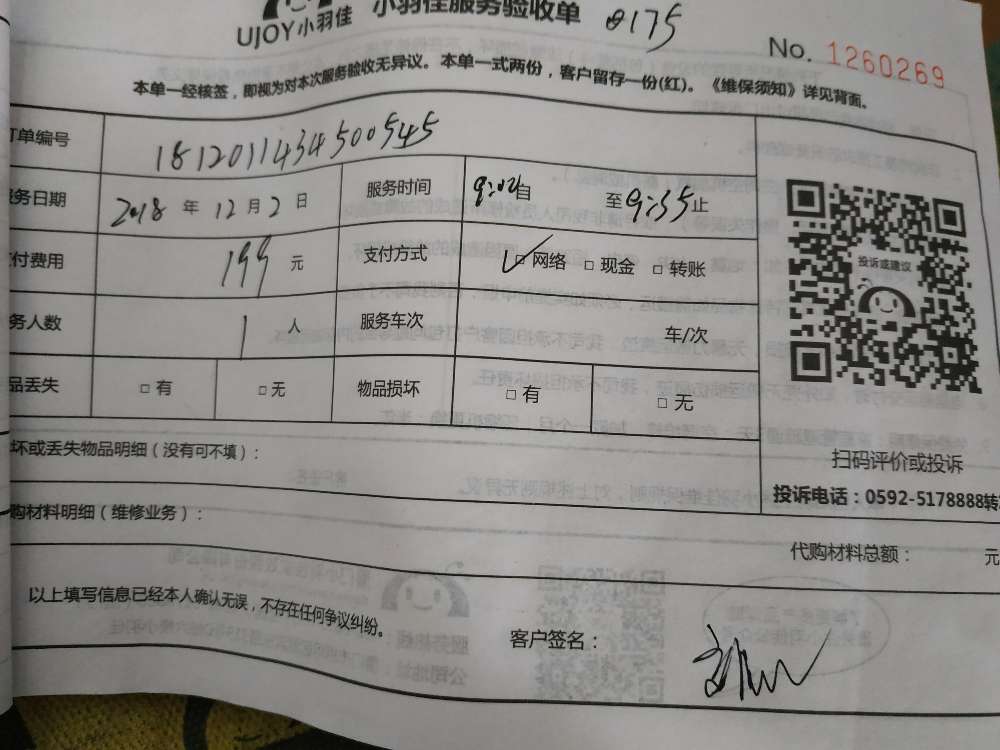 UJOY小羽佳 小羽佳服务验收单 0175
No. 1260269
本单一经核签，即视为对本次服务验收无异议。本单一式两份，客户留存一份(红)。《维保须知》详见背面。
订单编号 181201143450 0545
服务日期 2018 年 12 月 2 日 服务时间 9:02自 至9:35止
付费用 199 元 支付方式 ✓□网络 □现金 □转账
务人数 1 人 服务车次 车/次
品丢失 □有 □无 物品损坏 □有 □无
投诉或建议
扫码评价或投诉
投诉电话：0592-5178888转
坏或丢失物品明细（没有可不填）：
购材料明细（维修业务）：
代购材料总额： 元
以上填写信息已经本人确认无误，不存在任何争议纠纷。
客户签名：